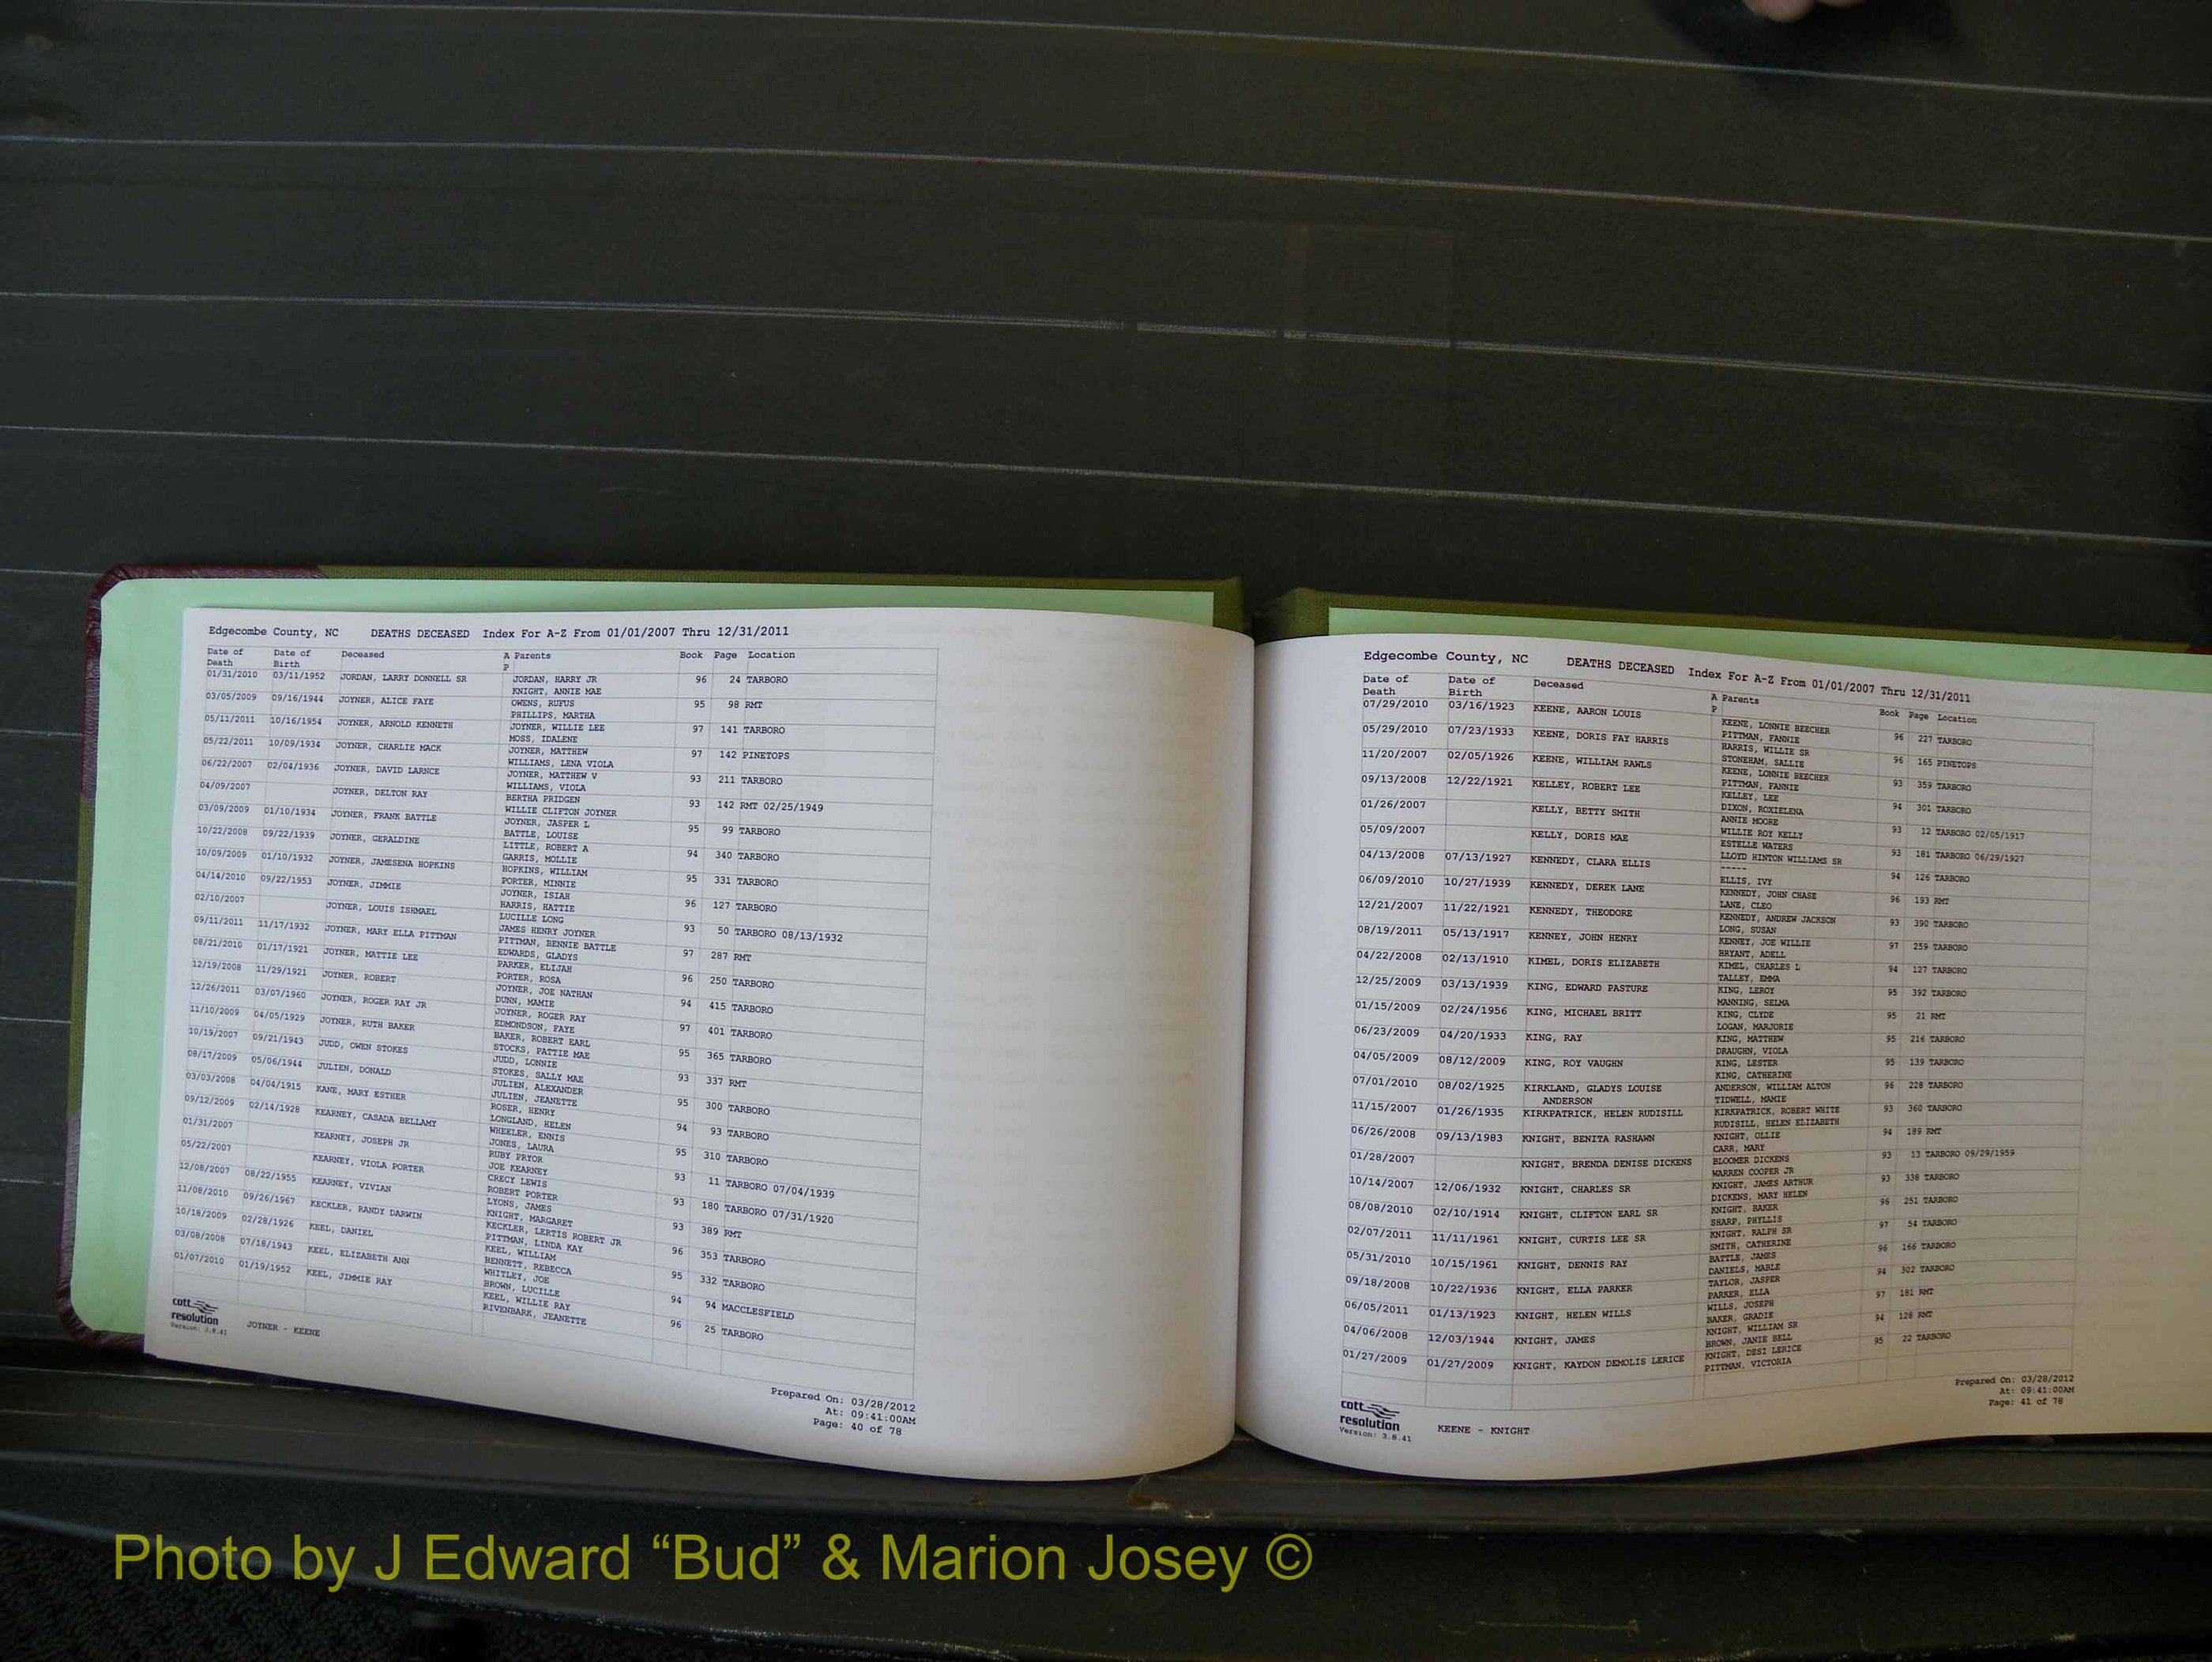 Edgecombe County, NC DEATHS DECEASED Index For A-Z From 01/01/2007 Thru 12/31/2011
Date of Death Date of Birth Deceased A P Parents Book Page Location
01/31/2010 03/11/1952 JORDAN, LARRY DONNELL SR JORDAN, HARRY JR 96 24 TARBORO
KNIGHT, ANNIE MAE
03/05/2009 09/16/1944 JOYNER, ALICE FAYE OWENS, RUFUS 95 98 RMT
PHILLIPS, MARTHA
05/11/2011 10/16/1954 JOYNER, ARNOLD KENNETH JOYNER, WILLIE LEE 97 141 TARBORO
MOSS, IDALENE
05/22/2011 10/09/1934 JOYNER, CHARLIE MACK JOYNER, MATTHEW 97 142 PINETOPS
WILLIAMS, LENA VIOLA
06/22/2007 02/04/1936 JOYNER, DAVID LARNCE JOYNER, MATTHEW V 93 211 TARBORO
WILLIAMS, VIOLA
04/09/2007 JOYNER, DELTON RAY BERTHA PRIDGEN 93 142 RMT 02/25/1949
WILLIE CLIFTON JOYNER
03/09/2009 01/10/1934 JOYNER, FRANK BATTLE JOYNER, JASPER L 95 99 TARBORO
BATTLE, LOUISE
10/22/2008 09/22/1939 JOYNER, GERALDINE LITTLE, ROBERT A 94 340 TARBORO
GARRIS, MOLLIE
10/09/2009 01/10/1932 JOYNER, JAMESENA HOPKINS HOPKINS, WILLIAM 95 331 TARBORO
PORTER, MINNIE
04/14/2010 09/22/1953 JOYNER, JIMMIE JOYNER, ISIAH 96 127 TARBORO
HARRIS, HATTIE
02/10/2007 JOYNER, LOUIS ISHMAEL LUCILLE LONG 93 50 TARBORO 08/13/1932
JAMES HENRY JOYNER
09/11/2011 11/17/1932 JOYNER, MARY ELLA PITTMAN PITTMAN, BENNIE BATTLE 97 287 RMT
EDWARDS, GLADYS
08/21/2010 01/17/1921 JOYNER, MATTIE LEE PARKER, ELIJAH 96 250 TARBORO
PORTER, ROSA
12/19/2008 11/29/1921 JOYNER, ROBERT JOYNER, JOE NATHAN 94 415 TARBORO
DUNN, MAMIE
12/26/2011 03/07/1960 JOYNER, ROGER RAY JR JOYNER, ROGER RAY 97 401 TARBORO
EDMONDSON, FAYE
11/10/2009 04/05/1929 JOYNER, RUTH BAKER BAKER, ROBERT EARL 95 365 TARBORO
STOCKS, PATTIE MAE
10/19/2007 09/21/1943 JUDD, OWEN STOKES JUDD, LONNIE 93 337 RMT
STOKES, SALLY MAE
08/17/2009 05/06/1944 JULIEN, DONALD JULIEN, ALEXANDER 95 300 TARBORO
JULIEN, JEANETTE
03/03/2008 04/04/1915 KANE, MARY ESTHER ROSER, HENRY 94 93 TARBORO
LONGLAND, HELEN
09/12/2009 02/14/1928 KEARNEY, CASADA BELLAMY WHEELER, ENNIS 95 310 TARBORO
JONES, LAURA
01/31/2007 KEARNEY, JOSEPH JR RUBY PRYOR 93 11 TARBORO 07/04/1939
JOE KEARNEY
05/22/2007 KEARNEY, VIOLA PORTER CRECY LEWIS 93 180 TARBORO 07/31/1920
ROBERT PORTER
12/08/2007 08/22/1955 KEARNEY, VIVIAN LYONS, JAMES 93 389 RMT
KNIGHT, MARGARET
11/08/2010 09/26/1967 KECKLER, RANDY DARWIN KECKLER, LERTIS ROBERT JR 96 353 TARBORO
PITTMAN, LINDA KAY
10/18/2009 02/28/1926 KEEL, DANIEL KEEL, WILLIAM 95 332 TARBORO
BENNETT, REBECCA
03/08/2008 07/18/1943 KEEL, ELIZABETH ANN WHITLEY, JOE 94 94 MACCLESFIELD
BROWN, LUCILLE
01/07/2010 01/19/1952 KEEL, JIMMIE RAY KEEL, WILLIE RAY 96 25 TARBORO
RIVENBARK, JEANETTE
cott
resolution
Version: 3.8.41
JOYNER - KEENE
Prepared On: 03/28/2012
At: 09:41:00AM
Page: 40 of 78
Edgecombe County, NC DEATHS DECEASED Index For A-Z From 01/01/2007 Thru 12/31/2011
Date of Death Date of Birth Deceased A P Parents Book Page Location
07/29/2010 03/16/1923 KEENE, AARON LOUIS KEENE, LONNIE BEECHER 96 227 TARBORO
PITTMAN, FANNIE
05/29/2010 07/23/1933 KEENE, DORIS FAY HARRIS HARRIS, WILLIE SR 96 165 PINETOPS
STONEHAM, SALLIE
11/20/2007 02/05/1926 KEENE, WILLIAM RAWLS KEENE, LONNIE BEECHER 93 359 TARBORO
PITTMAN, FANNIE
09/13/2008 12/22/1921 KELLEY, ROBERT LEE KELLEY, LEE 94 301 TARBORO
DIXON, ROXIELENA
01/26/2007 KELLY, BETTY SMITH ANNIE MOORE 93 12 TARBORO 02/05/1917
WILLIE ROY KELLY
05/09/2007 KELLY, DORIS MAE ESTELLE WATERS 93 181 TARBORO 06/29/1927
LLOYD HINTON WILLIAMS SR
04/13/2008 07/13/1927 KENNEDY, CLARA ELLIS ----- 94 126 TARBORO
ELLIS, IVY
06/09/2010 10/27/1939 KENNEDY, DEREK LANE KENNEDY, JOHN CHASE 96 193 RMT
LANE, CLEO
12/21/2007 11/22/1921 KENNEDY, THEODORE KENNEDY, ANDREW JACKSON 93 390 TARBORO
LONG, SUSAN
08/19/2011 05/13/1917 KENNEY, JOHN HENRY KENNEY, JOE WILLIE 97 259 TARBORO
BRYANT, ADELL
04/22/2008 02/13/1910 KIMEL, DORIS ELIZABETH KIMEL, CHARLES L 94 127 TARBORO
TALLEY, EMMA
12/25/2009 03/13/1939 KING, EDWARD PASTURE KING, LEROY 95 392 TARBORO
MANNING, SELMA
01/15/2009 02/24/1956 KING, MICHAEL BRITT KING, CLYDE 95 21 RMT
LOGAN, MARJORIE
06/23/2009 04/20/1933 KING, RAY KING, MATTHEW 95 216 TARBORO
DRAUGHN, VIOLA
04/05/2009 08/12/2009 KING, ROY VAUGHN KING, LESTER 95 139 TARBORO
KING, CATHERINE
07/01/2010 08/02/1925 KIRKLAND, GLADYS LOUISE ANDERSON, WILLIAM ALTON 96 228 TARBORO
ANDERSON TIDWELL, MAMIE
11/15/2007 01/26/1935 KIRKPATRICK, HELEN RUDISILL KIRKPATRICK, ROBERT WHITE 93 360 TARBORO
RUDISILL, HELEN ELIZABETH
06/26/2008 09/13/1983 KNIGHT, BENITA RASHAWN KNIGHT, OLLIE 94 189 RMT
CARR, MARY
01/28/2007 KNIGHT, BRENDA DENISE DICKENS BLOOMER DICKENS 93 13 TARBORO 09/29/1959
WARREN COOPER JR
10/14/2007 12/06/1932 KNIGHT, CHARLES SR KNIGHT, JAMES ARTHUR 93 338 TARBORO
DICKENS, MARY HELEN
08/08/2010 02/10/1914 KNIGHT, CLIFTON EARL SR KNIGHT, BAKER 96 251 TARBORO
SHARP, PHYLLIS
02/07/2011 11/11/1961 KNIGHT, CURTIS LEE SR KNIGHT, RALPH SR 97 54 TARBORO
SMITH, CATHERINE
05/31/2010 10/15/1961 KNIGHT, DENNIS RAY BATTLE, JAMES 96 166 TARBORO
DANIELS, MABLE
09/18/2008 10/22/1936 KNIGHT, ELLA PARKER TAYLOR, JASPER 94 302 TARBORO
PARKER, ELLA
06/05/2011 01/13/1923 KNIGHT, HELEN WILLS WILLS, JOSEPH 97 181 RMT
BAKER, GRADIE
04/06/2008 12/03/1944 KNIGHT, JAMES KNIGHT, WILLIAM SR 94 128 RMT
BROWN, JANIE BELL
01/27/2009 01/27/2009 KNIGHT, KAYDON DEMOLIS LERICE KNIGHT, DESI LERICE 95 22 TARBORO
PITTMAN, VICTORIA
cott
resolution
Version: 3.8.41
KEENE - KNIGHT
Prepared On: 03/28/2012
At: 09:41:00AM
Page: 41 of 78
Photo by J Edward “Bud” & Marion Josey ©